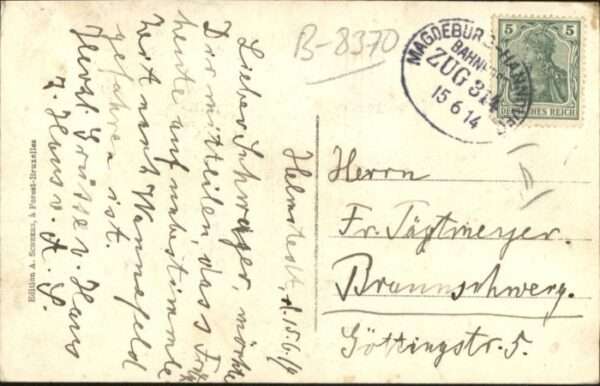 B-8370
MAGDEBURG-HANNOVER
BAHNPOST
ZUG 314
15 6 14
5 5
DEUTSCHES REICH
Helmstedt, d. 15.6.14
Lieber Schwager, möchte
Dir mitteilen, dass Fritz
heute auf unbestimmte
Zeit nach Wannefeld
gefahren ist.
Herzl. Grüsse v. Haus
z. Haus v. A. S.
Herrn
Fr. Tägtmeyer.
Braunschweig.
Göttingstr. 5.
Edition A. Schkens, à Forest-Bruxelles